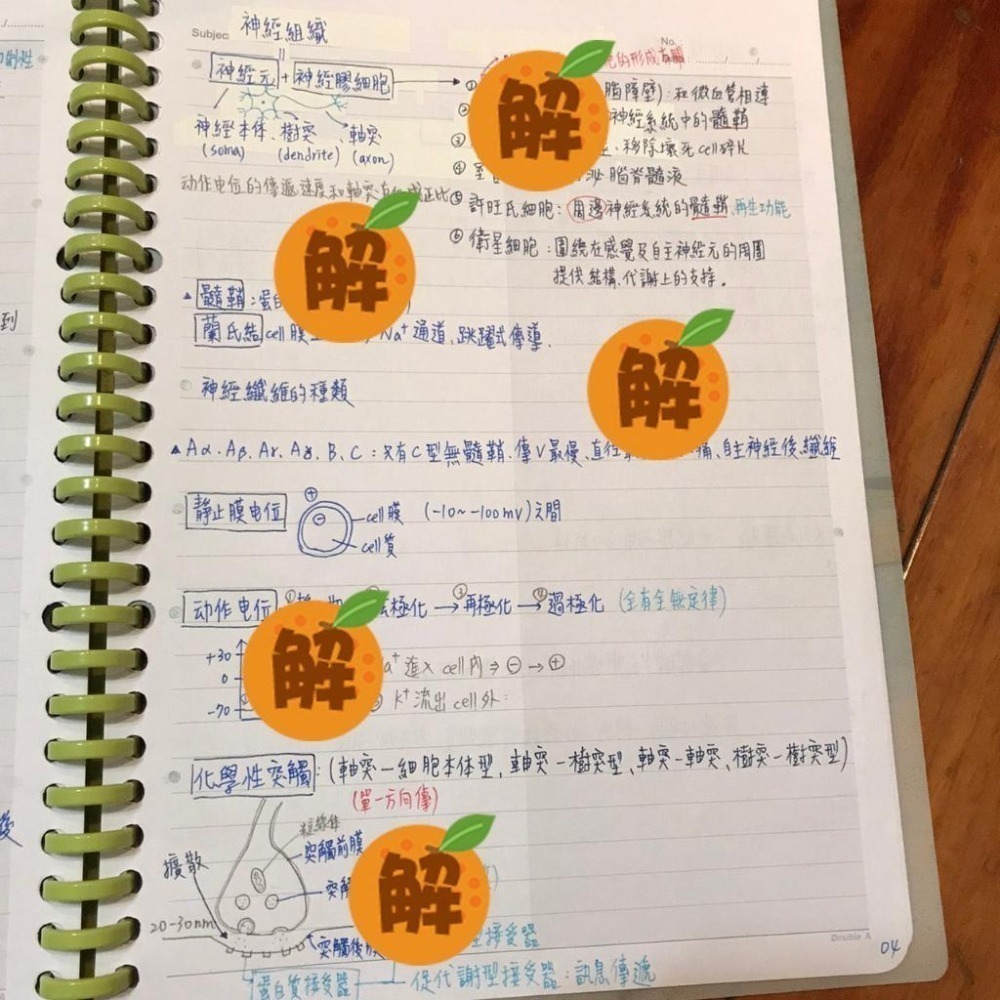 Subjec 神經組織
No.
神經元 + 神經膠細胞
的形成有關
腦障壁): 和微血管相連
神經系統中的髓鞘
③ 移除壞死cell碎片
④ 泌腦脊髓液
⑤ 許旺氏細胞: 周邊神經系統的髓鞘, 再生功能
⑥ 衛星細胞: 圍繞在感覺及自主神經元的周圍
提供結構、代謝上的支持。
神經本体、樹突、軸突
(soma) (dendrite) (axon)
动作电位的傳遞速度和軸突 正比
解
解
解
解
解
▲ 髓鞘: 蛋白
蘭氏結 cell膜 Na⁺通道, 跳躍式傳導.
神經纖維的種類
▲ Aα、Aβ、Aγ、Aδ、B、C: 只有C型無髓鞘、傳V最慢、直徑 痛、自主神經後纖維
靜止膜电位
⊕
⊖
cell膜 (-10~-100mV)之間
cell質
动作电位 ① 極化 → ③ 再極化 → ④ 過極化 (全有全無定律)
+30
0
-70
a⁺進入cell內 ⇒ ⊖ → ⊕
K⁺流出cell外:
化學性突觸: (軸突-細胞本体型、軸突-樹突型、軸突-軸突、樹突-樹突型)
(單一方向傳)
粒線体
突觸前膜
擴散
突觸
20-30nm
突觸後膜
型接受器
蛋白質接受器
促代謝型接受器: 訊息傳遞
Double A
04
到
後